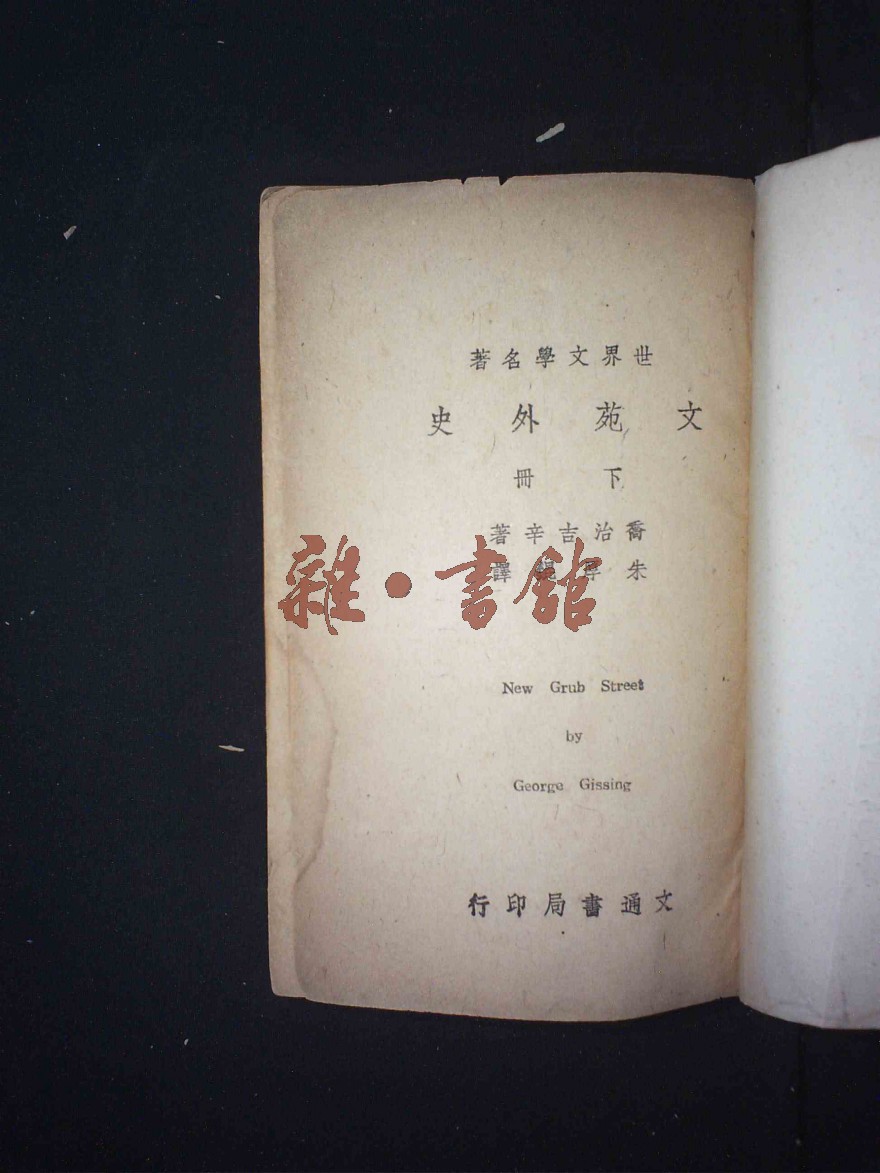 世界文學名著
文苑外史
下冊
喬治吉辛著
朱厚錕譯
雜·書館
New Grub Street
by
George Gissing
文通書局印行